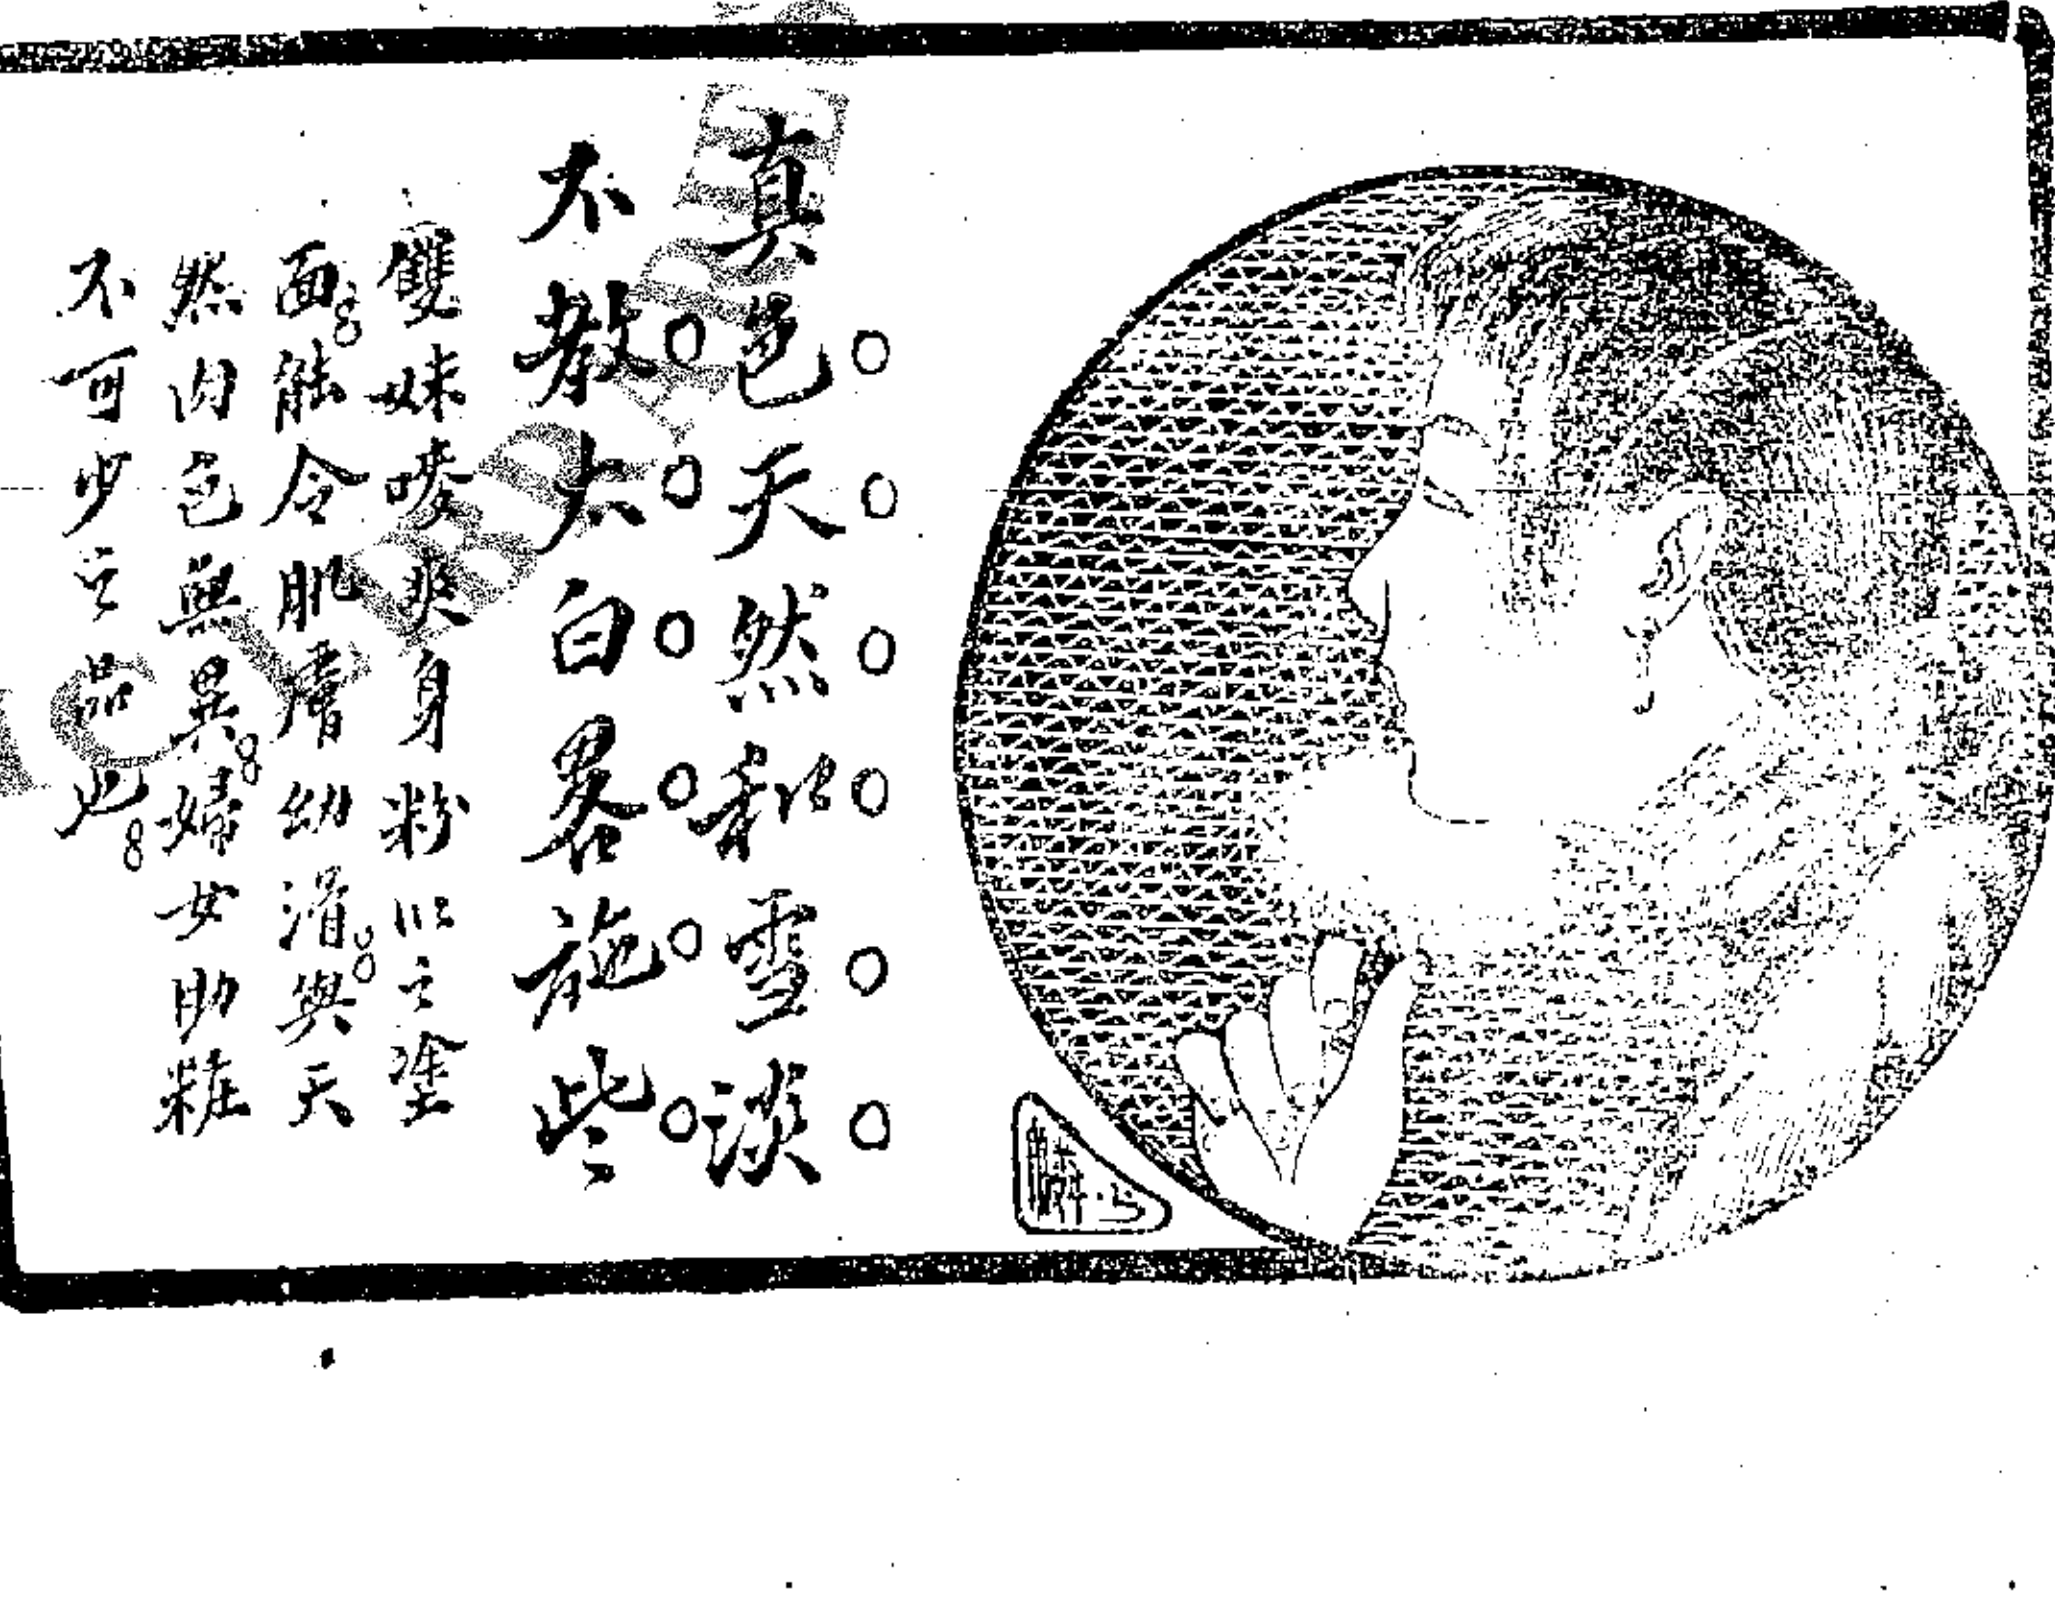 真色天然和雪談
不教太白畧施些
雙妹嘜爽身粉以之塗
面能令肌膚幼滑與天
然肉色無異婦女助粧
不可少之品也